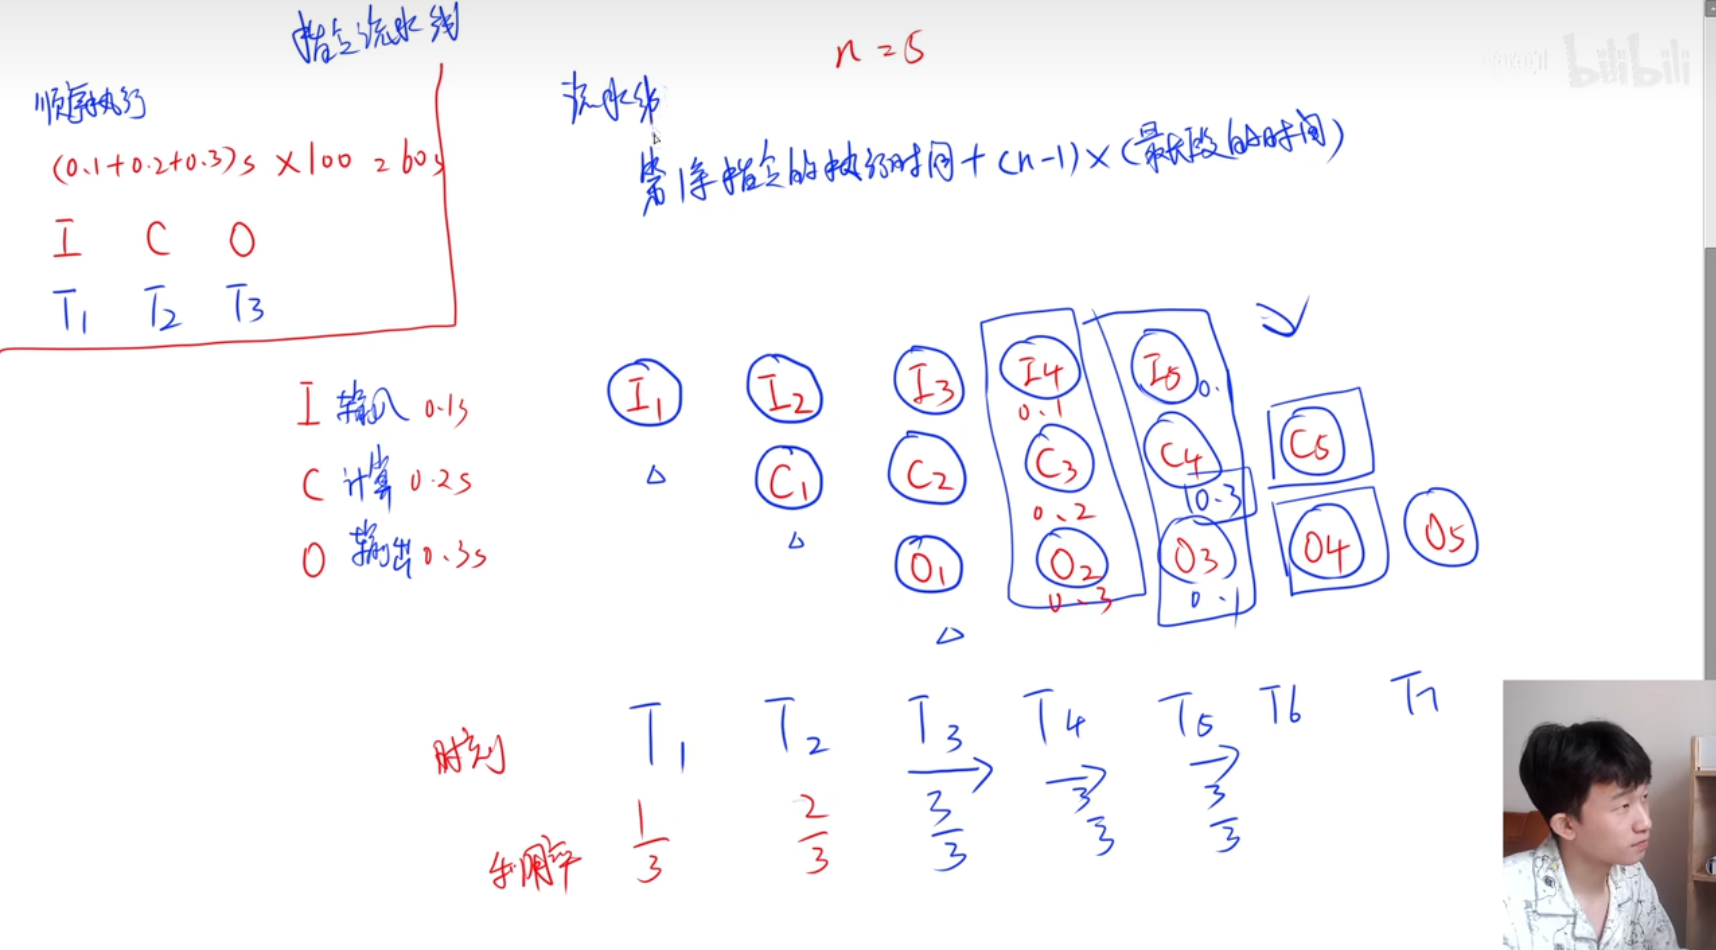 指令流水线
n=5
bilibili
顺序执行
(0.1+0.2+0.3)s ×100 = 60s
I C O
T1 T2 T3
流水线
第1条指令的执行时间+(n-1)×(最长段的时间)
I 输入 0.1s
C 计算 0.2s
O 输出 0.3s
I1 I2 I3 I4 I5
0.1 0.
C1 C2 C3 C4 C5
0.2 0.3
O1 O2 O3 O4 O5
0.3 0.1
时刻 T1 T2 T3 T4 T5 T6 T7
利用率 1/3 2/3 3/3 3/3 3/3